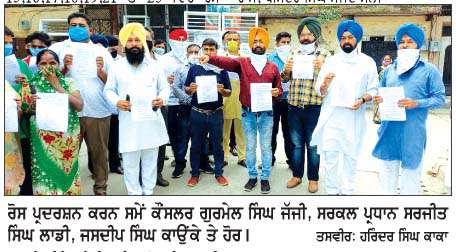 ਰੋਸ ਪ੍ਰਦਰਸ਼ਨ ਕਰਨ ਸਮੇਂ ਕੌਂਸਲਰ ਗੁਰਮੇਲ ਸਿੰਘ ਜੱਜੀ, ਸਰਕਲ ਪ੍ਰਧਾਨ ਸਰਜੀਤ
ਸਿੰਘ ਲਾਡੀ, ਜਸਦੀਪ ਸਿੰਘ ਕਾਉਂਕੇ ਤੇ ਹੋਰ। ਤਸਵੀਰ: ਹਰਿੰਦਰ ਸਿੰਘ ਕਾਕਾ